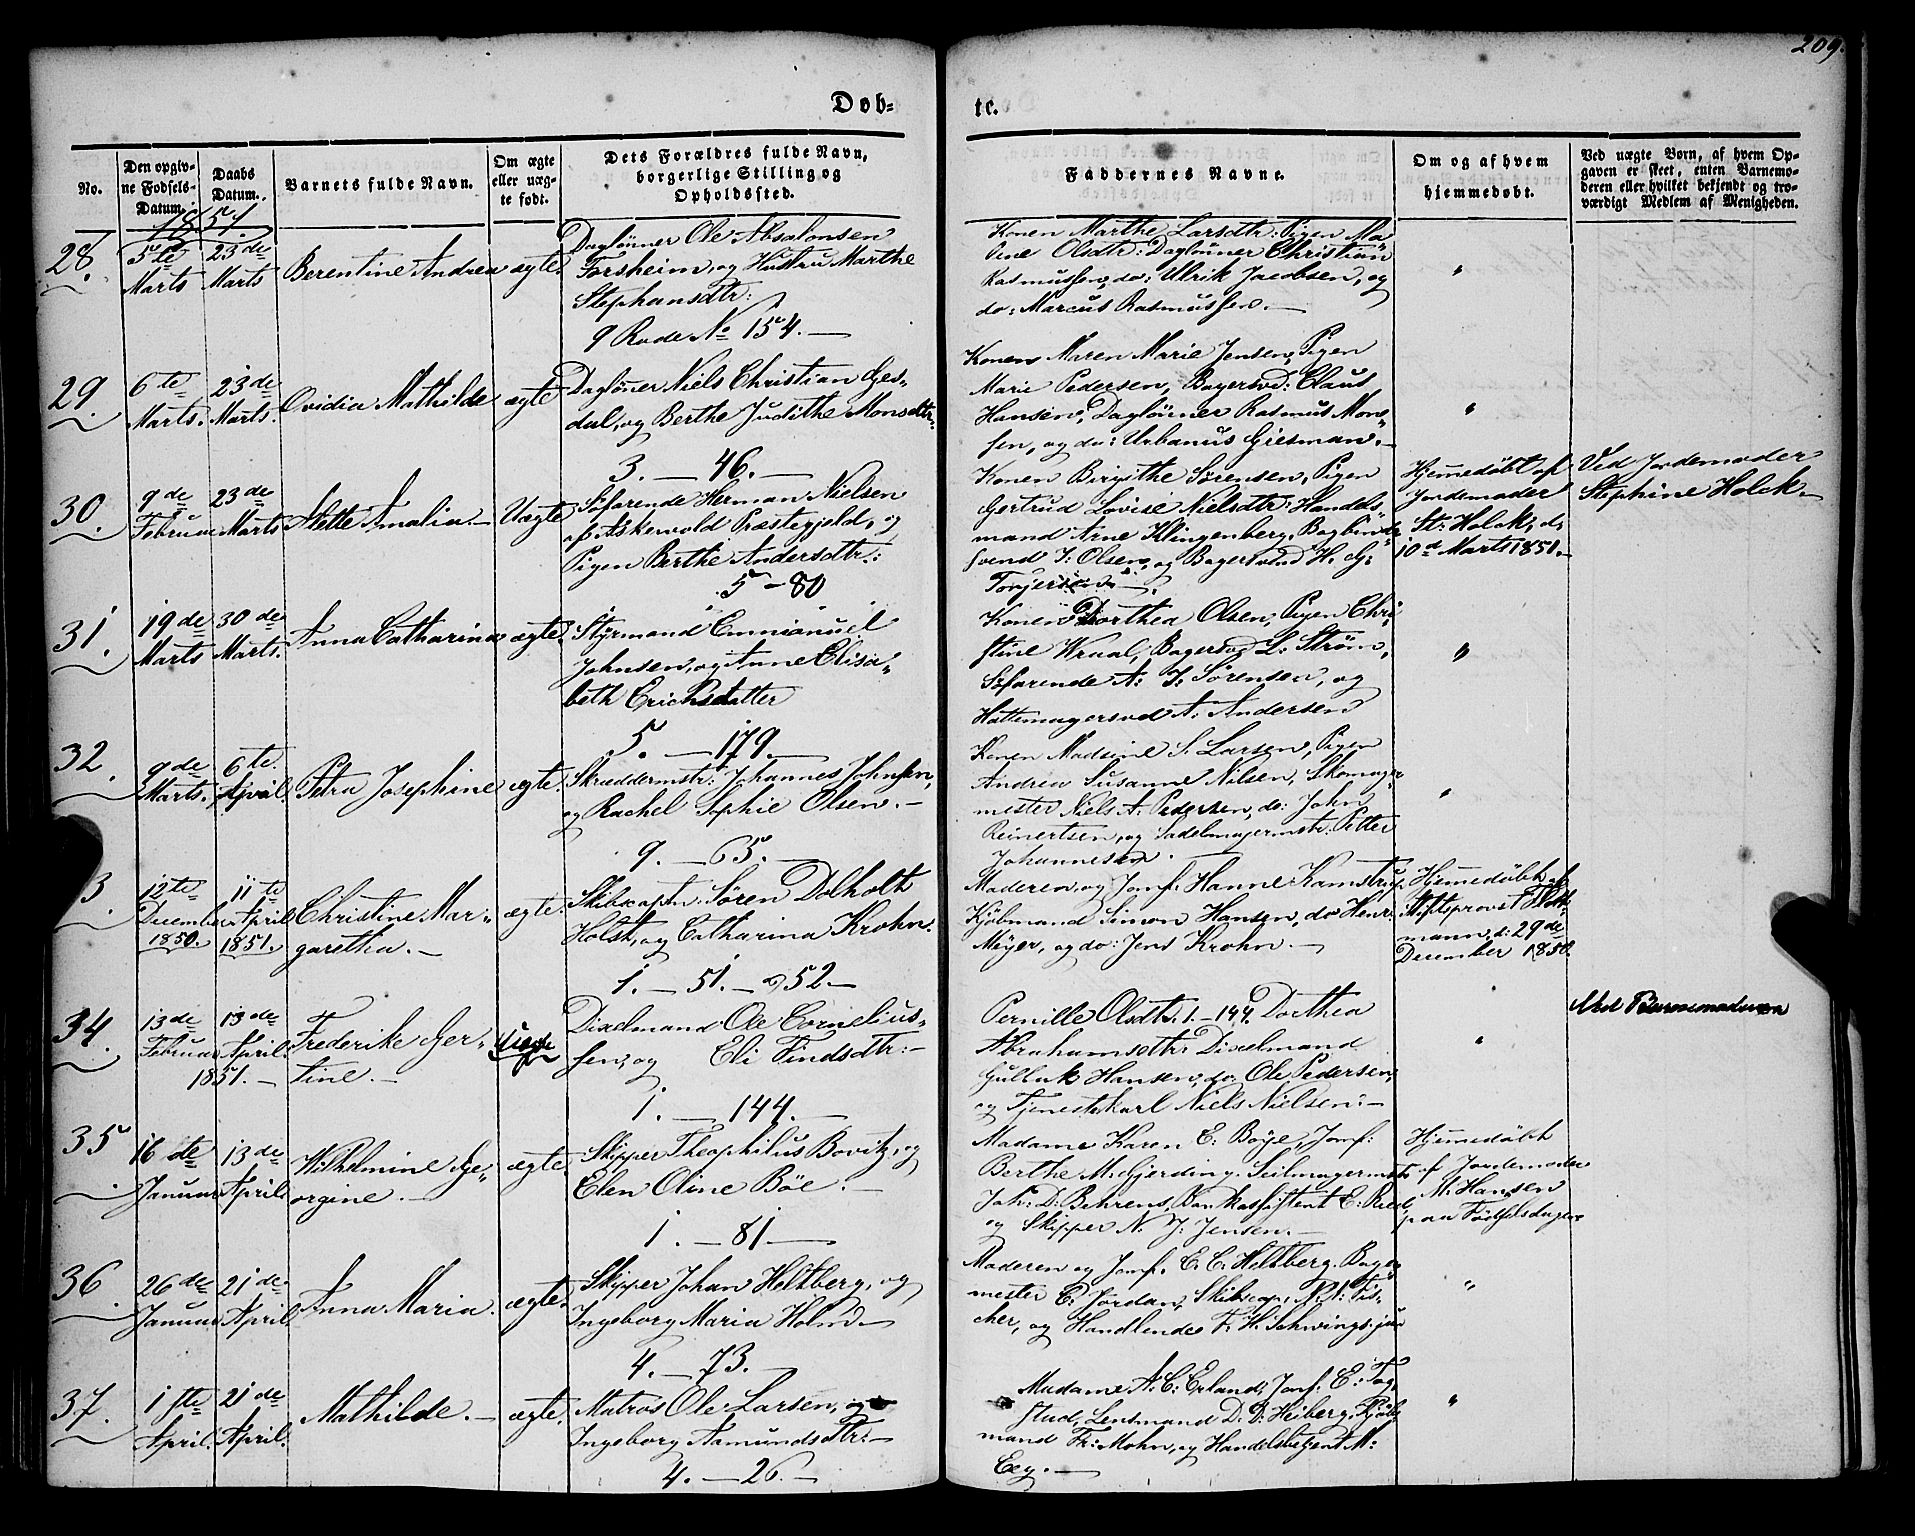 209.
Døb-
te.
No.
Den opgiv-
ne Fødsels-
Datum.
Daabs
Datum.
Barnets fulde Navn.
Om ægte
eller uæg-
te født.
Dets Forældres fulde Navn,
borgerlige Stilling og
Opholdssted.
Faddernes Navne.
Om og af hvem
hjemmedøbt.
Ved uægte Børn, af hvem Op-
gaven er skeet, enten Barnemo-
deren eller hvilket bekjendt og tro-
værdigt Medlem af Menigheden.
1851.
28.
5te
Marts
23de
Marts
Berentine Andrea
ægte.
Daglønner Ole Absalonsen
Forsheim, og Hustru Marthe
Stephansdtr:
9 Rode No 154.
Konen Marthe Larsdtr: Pigen Ma-
Olsdtr: Daglønner Christian
Rasmussen, do: Ulrik Jacobsen, og
do: Marcus Rasmussen.
"
29.
6te
Marts.
23de
Marts.
Ovidia Mathilde
ægte
Daglönner Niels Christian Ges-
dal, og Berthe Judithe Monsdtr:
3. — 46.
Konen Maren Marie Jensen, Pigen
Marie Pedersen, Bagersvd: Claus
Hansen, Daglønner Rasmus Mon-
sen, og do: Urbanus Giesman.
"
30.
9de
Februar
23de
Marts
Alette Amalia.
Uægte
Søfarende Herman Nielsen
af Askevold Præstegjeld, og
Pigen Berthe Andersdtr:
5 - 80
Konen Birgithe Sørensen, Pigen
Gertrud Lovise Nielsdtr: Handels-
mand Arne Klingenberg, Bogbinder
svend J: Olsen, og Bagersvend H. G:
Torjersen.
Hjemmedøbt af
Jordemoder
St: Holck, d:
10d Marts 1851.
Ved Jordemoder
Stephine Holck
31.
19de
Marts
30de
Marts.
Anna Catharina
ægte.
Styrmand Emmanuel
Johnsen, og Anne Elisa-
beth Erichsdatter
5. — 179.
Konen Dorthea Olsen, Pigen Chri-
stine Wraal, Bagersvd L: Strøm,
Søfarende A: J: Sørensen, og
Hattemagersvd A: Andersen
"
32.
9de
Marts.
6te
April.
Petra Josephine
ægte.
Skræddermstr: Johannes Johnsen,
og Rachel Sophie Olsen.
9. — 65.
Konen Madsine S. Larsen, Pigen
Andrea Susanne Nilsen, Skomager
mester Niels A: Pedersen, do: John
Reinertsen, og Sadelmagermstr. Petter
Johannesen.
"
3
12te
December
1850.
11te
April
1851.
Christine Mar-
garetha.
ægte.
Skibscaptn. Søren Dolholt
Holst, og Catharina Krohn.
1. — 51. — 52.
Moderen, og Jomf: Hanne Kamstrup,
Kjøbmand Simon Hansen, do Henr:
Meyer, og do: Jens Krohn.
Hjemmedøbt af
Stiftsprovst
mann, d: 29de
December 1850.
34.
13de
Februar
13de
April.
1851.
Frederike Ger-
tine.
Uægte
Dixelmand Ole Cornelius-
sen, og Eli Findsdtr:
1. — 144.
Pernille Olsdtr. 1.-144. Dorthea
Abrahamsdtr: Dixelmand
Gulluk Hansen, do: Ole Pedersen,
og Tjenestekarl Niels Nielsen:
"
Ved Barnemoderen
35
16de
Januar
13de
April.
Wilhelmine Ge-
orgine.
ægte.
Skipper Theophilus Bovitz, og
Elen Oline Böe.
1. — 81
Madame Karen E: Boye, Jomf:
Berthe M: Gjerding. Seilmagermstr
Joh: D: Behrens, Bankassistent C: Ried,
og Skipper N. J: Jensen.
Hjemmedøbt
af Jordemoder
M: Hansen
paa Fødselsdagen
36.
26de
Januar
21de
April
Anna Maria.
ægte.
Skipper Johan Heltberg, og
Ingeborg Maria Holm
4. — 73.
Moderen og Jomf. C. C. Heltberg. Bager
mester C: Jordan, Skibscap: Fis-
cher, og Handlende F: H: Schwings jun
"
37.
1ste
April.
21de
April.
Mathilde.
ægte.
Matros Ole Larsen, og
Ingeborg Aamundsdtr:
4. — 26.
Madame A: C: Erland, Jomf. E: Fog-
stad, Lensmand D. D: Heiberg, Kjøb-
mand Fr: Mohn, og Handelsbetjent M:
Eeg.
"